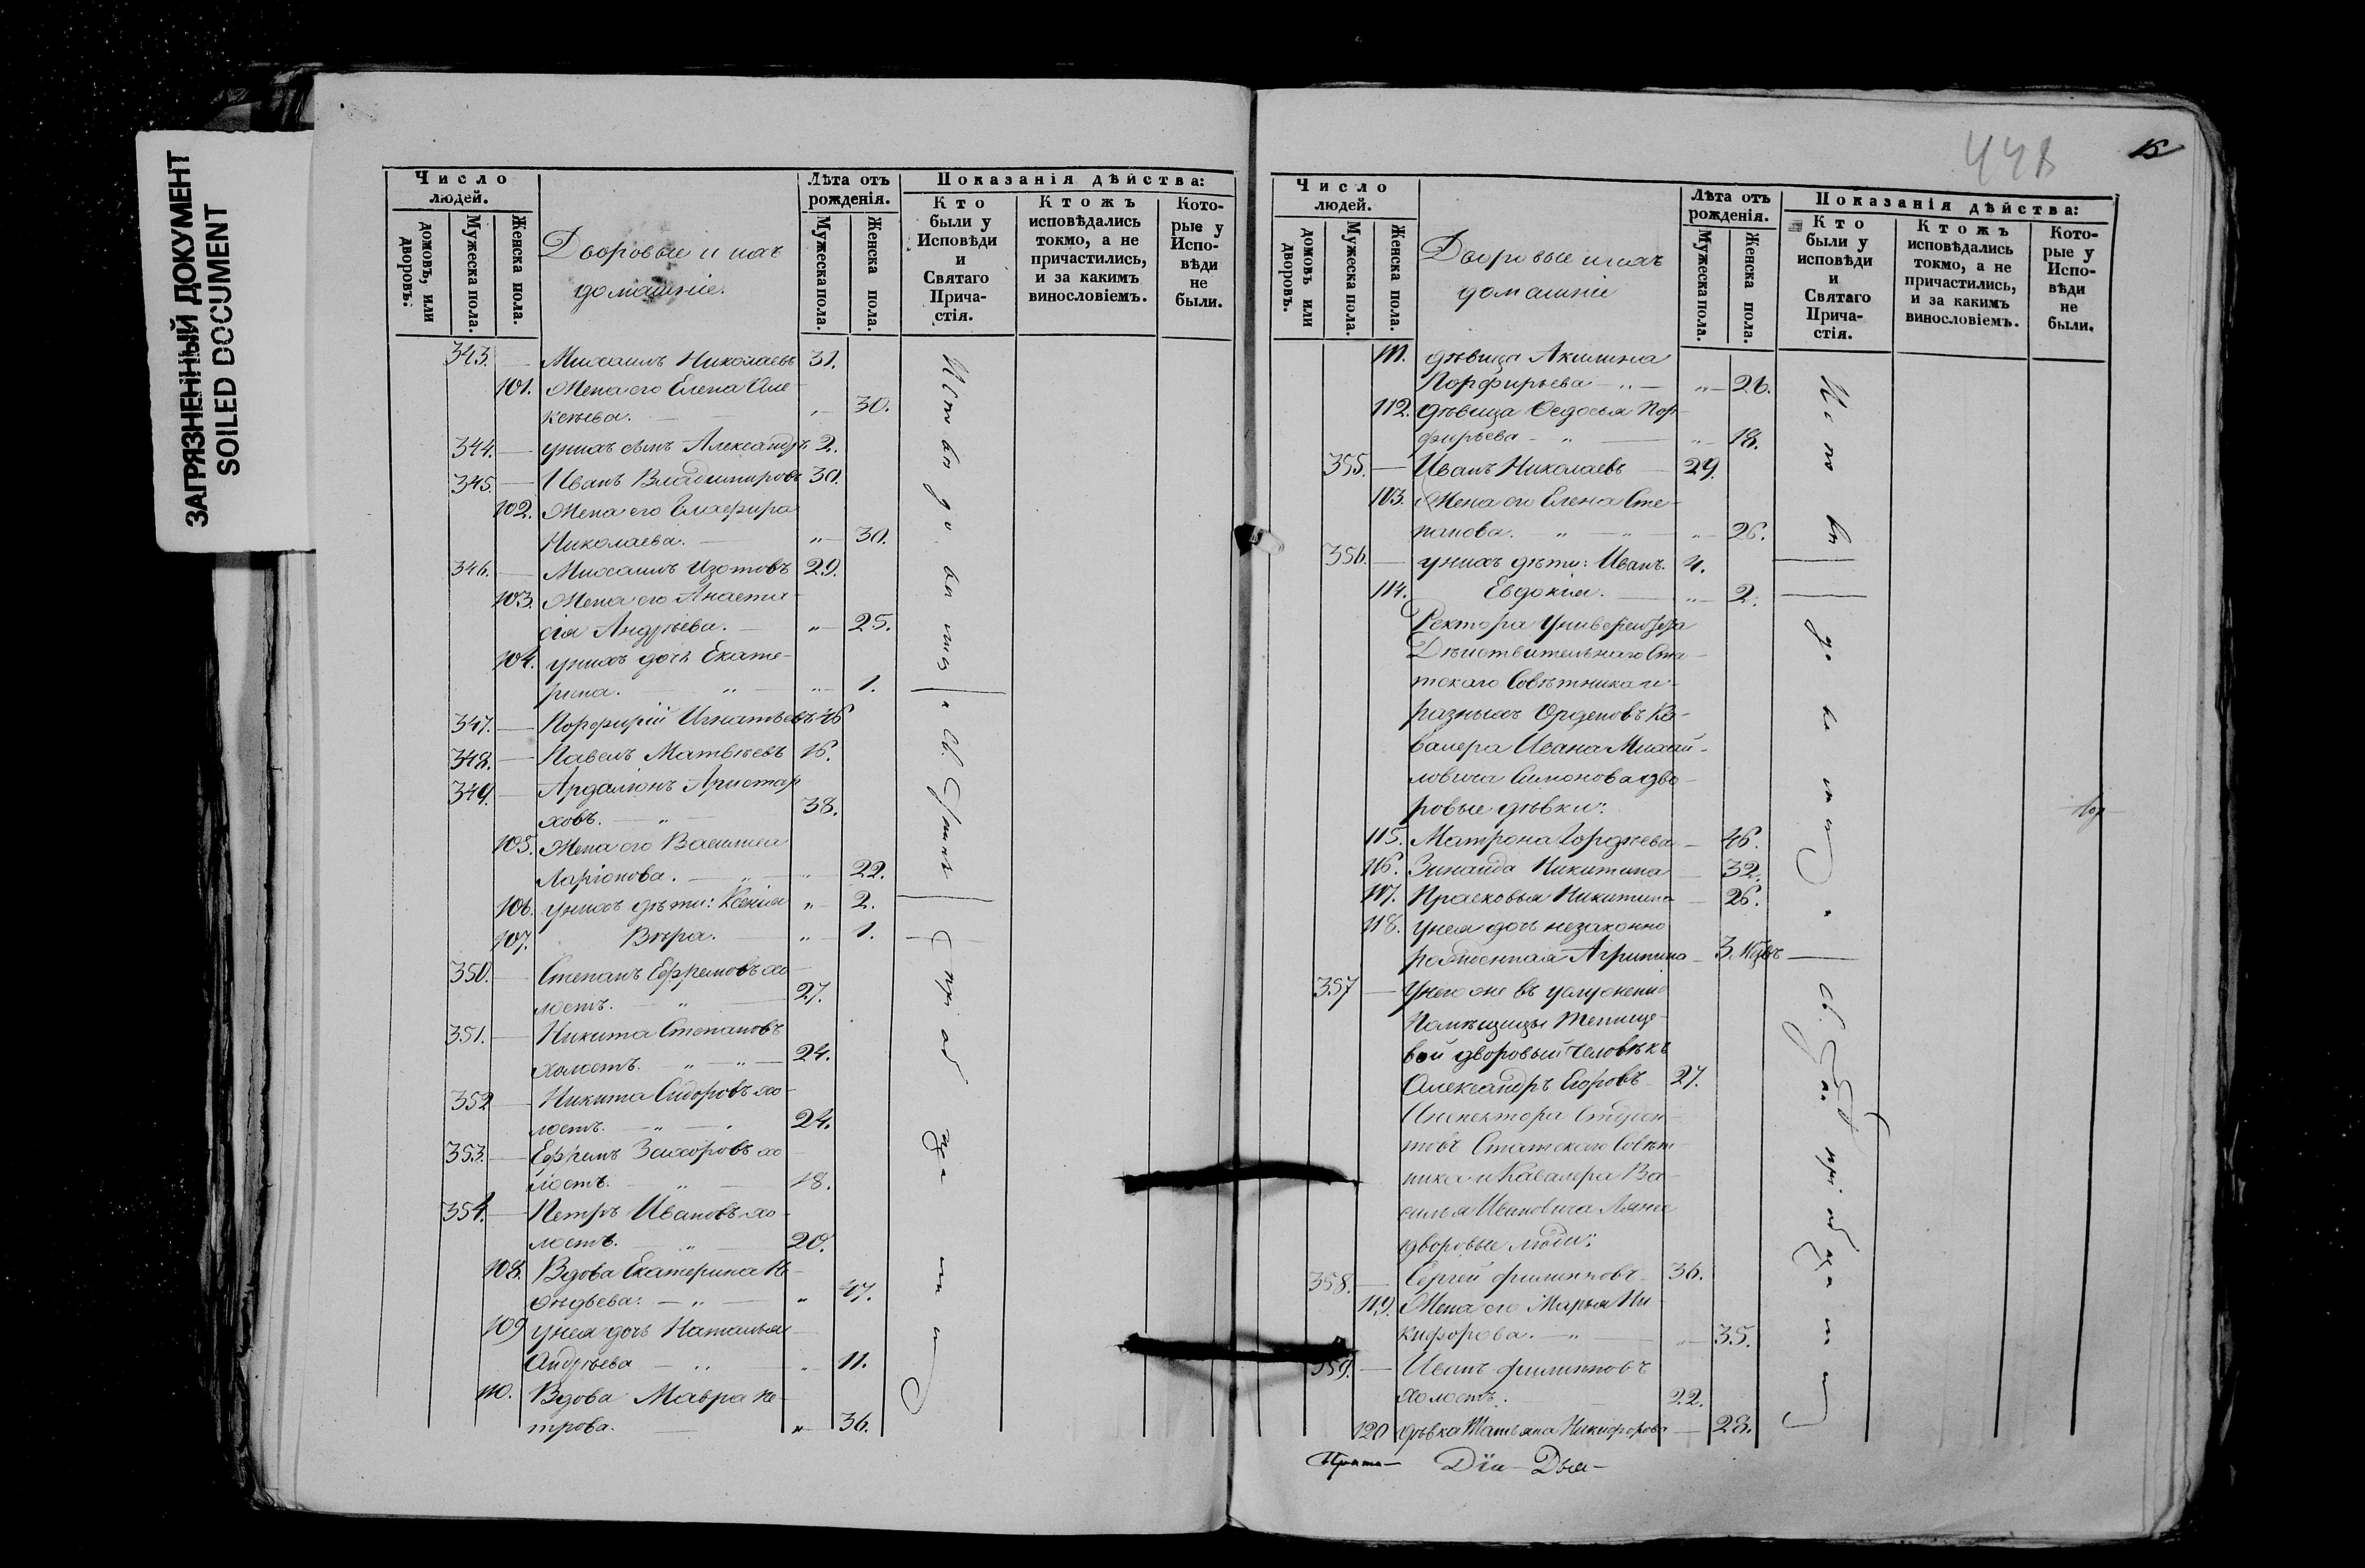 ЗАГРЯЗНЕННЫЙ ДОКУМЕНТ
SOILED DOCUMENT
Число людей.
домовъ, или дворовъ:
Мужеска пола.
Женска пола.
Дворовые и ихъ
домашніе.
Лѣта отъ рожденія.
Мужеска пола.
Женска пола.
Показанія дѣйства:
Кто были у Исповѣди и Святаго Прича- стія.
Ктожъ исповѣдались токмо, а не причастились, и за какимъ винословіемъ.
Кото- рые у Испо- вѣди не были.
343. — Михаилъ Николаевъ 31.
101. Жена его Елена Але-
ксѣева. — „ — 30.
344. — у нихъ сынъ Александръ 2.
345. — Иванъ Владимировъ 30.
102. Жена его Глафира
Николаева. — „ — 30.
346. — Михаилъ Изотовъ 29.
103. Жена его Анаста-
сія Андрѣева. — „ — 25.
104. у нихъ дочь Екате-
рина. — „ — „ — 1.
347. — Порфирій Игнатьевъ 46
348. — Павелъ Матвѣевъ 16.
349. — Ардаліонъ Аристар
ховъ. — „ — 38.
105. Жена его Василиса
Ларіонова. — „ — „ — 22.
106. у нихъ дѣти: Ксенія „ — 2.
107. Вѣра. — „ — 1.
350. — Степанъ Ефремовъ хо-
лостъ. „ — 27.
351. — Никита Степановъ
холостъ. — „ — „ — 24.
352 — Никита Сидоровъ хо-
лостъ. — „ — „ 24.
353. — Ефремъ Захаровъ хо-
лостъ. — „ — 18.
354. — Петръ Ивановъ хо-
лостъ. — „ — 20.
108. Вдова Екатерина
— „ — „ 47.
109 у нея дочь Наталья
Андрѣева — „ — „ 11.
110. Вдова Мавра Пе-
трова. — „ — 36.
Исповѣдовались и Св. Таинъ пріобщались
448
15
Число людей.
домовъ или дворовъ.
Мужеска пола.
Женска пола.
Дворовые и ихъ
домашніе
Лѣта отъ рожденія.
Мужеска пола.
Женска пола.
Показанія дѣйства:
Кто были у исповѣди и Святаго Прича- стія.
Ктожъ исповѣдались токмо, а не причастились, и за какимъ винословіемъ.
Кото- рые у Испо- вѣди не были.
111. дѣвица Акилина
Порфирьева — „ — „ — 26.
112. дѣвица Ѳедосья Пор-
фирьева — „ — „ — 18.
355. — Иванъ Николаевъ — 29.
113. Жена его Елена Сте-
панова. „ — „ — „ — 26.
356. — у нихъ дѣти: Иванъ. 4.
114. Евдокія. — „ — 2.
Ректора Университета
Дѣйствительнаго Ста-
тскаго Совѣтника и
разныхъ Орденовъ Ка-
валера Ивана Михай-
ловича Симонова дво-
ровые дѣвки:
115. Матрона Гордѣева — 46.
116. Зинаида Никитина — 32.
117. Прасковья Никитина — 26.
118. у нея дочь незаконно
рожденная Агрипина — 3 Мѣсъ
357 — У него же въ услуженіи
Помѣщицы
вой дворовый человѣкъ
Александръ Егоровъ — 27.
Инспектора Студен-
товъ Статскаго Совѣт-
ника и Кавалера Ва-
силья Ивановича
дворовые люди:
358. — Сергей Филипповъ — 36.
119. Жена его Марья Ни-
кифорова. — „ — „ — 35.
359. — Иванъ Филипповъ
холостъ. — 22.
120 дѣвка Татьяна Никифорова — 28.
Исповѣдовались и Св. Таинъ пріобщались
Діа- Дья-